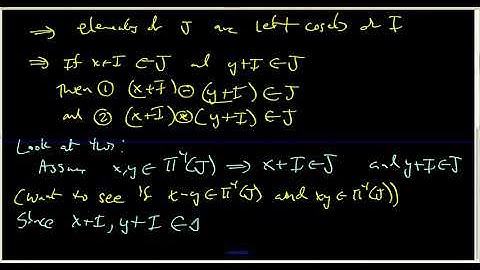 ⇒ elements of J are left cosets of I
⇒ If x+I ∈ J and y+I ∈ J
Then ① (x+I) ⊖ (y+I) ∈ J
and ② (x+I) ⊛ (y+I) ∈ J
Look at this:
Assume x,y ∈ Π⁻¹(J) ⇒ x+I ∈ J and y+I ∈ J
(want to see if x-y ∈ Π⁻¹(J) and xy ∈ Π⁻¹(J))
Since x+I, y+I ∈